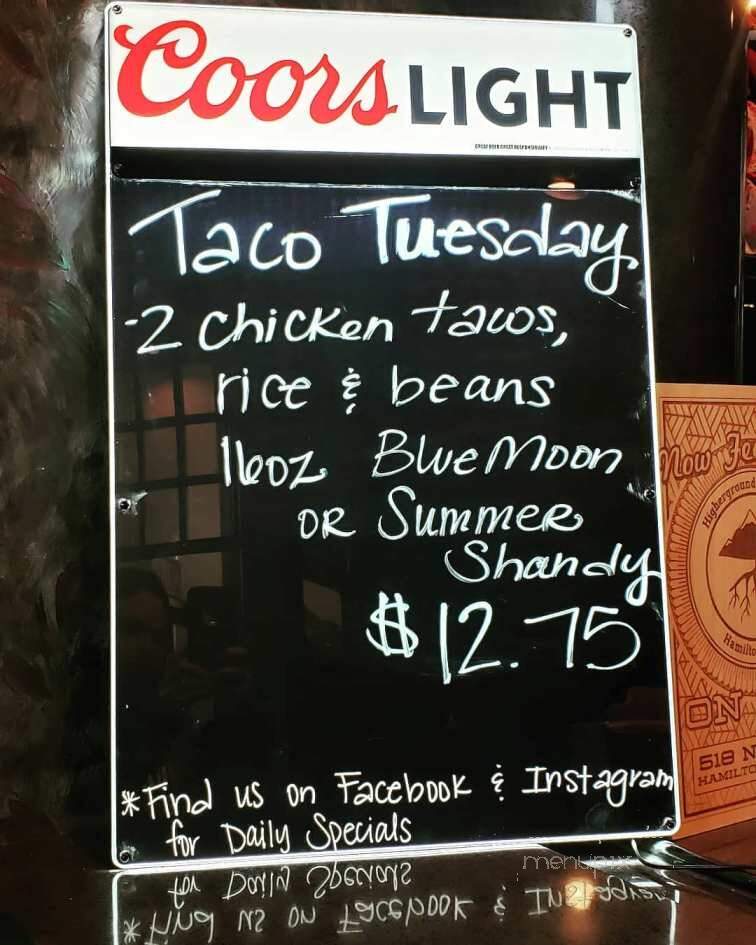 Coors LIGHT
GREAT BEER GREAT RESPONSIBILITY
Taco Tuesday
-2 Chicken tacos,
rice & beans
16oz Blue Moon
OR Summer
Shandy
$12.75
*Find us on Facebook & Instagram
for Daily Specials
Now
Higherground
Hamilto
ON
518 N
HAMILTO
menupix